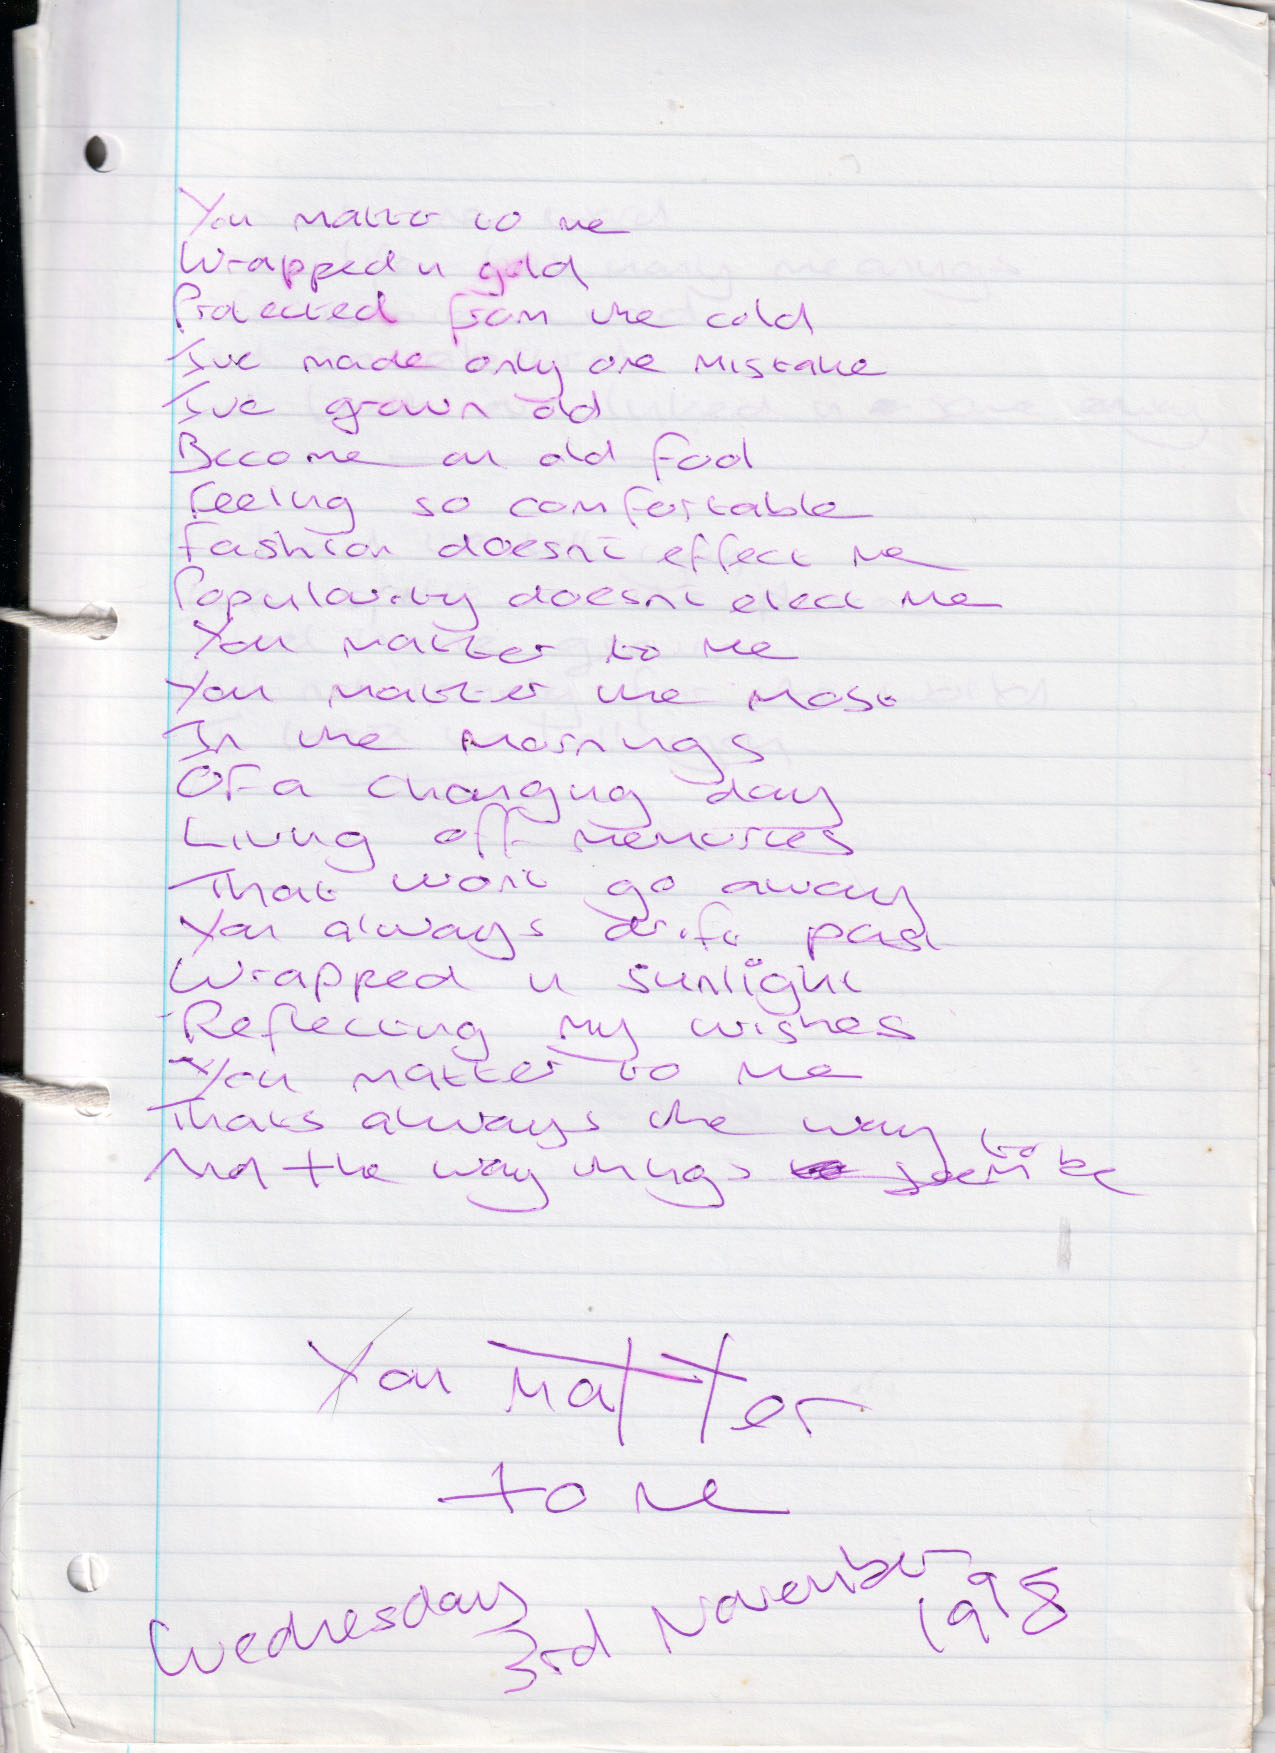 You matter to me
Wrapped in gold
Protected from the cold
I've made only one mistake
I've grown old
Become an old fool
Feeling so comfortable
Fashion doesn't effect me
Popularity doesn't elect me
You matter to me
You matter the most
In the mornings
Of a changing day
Living off memories
That won't go away
You always drift past
Wrapped in sunlight
Reflecting my wishes
You matter to me
Thats always the way
And the way things seem to be
You matter
to me
Wednesday
3rd November
1998